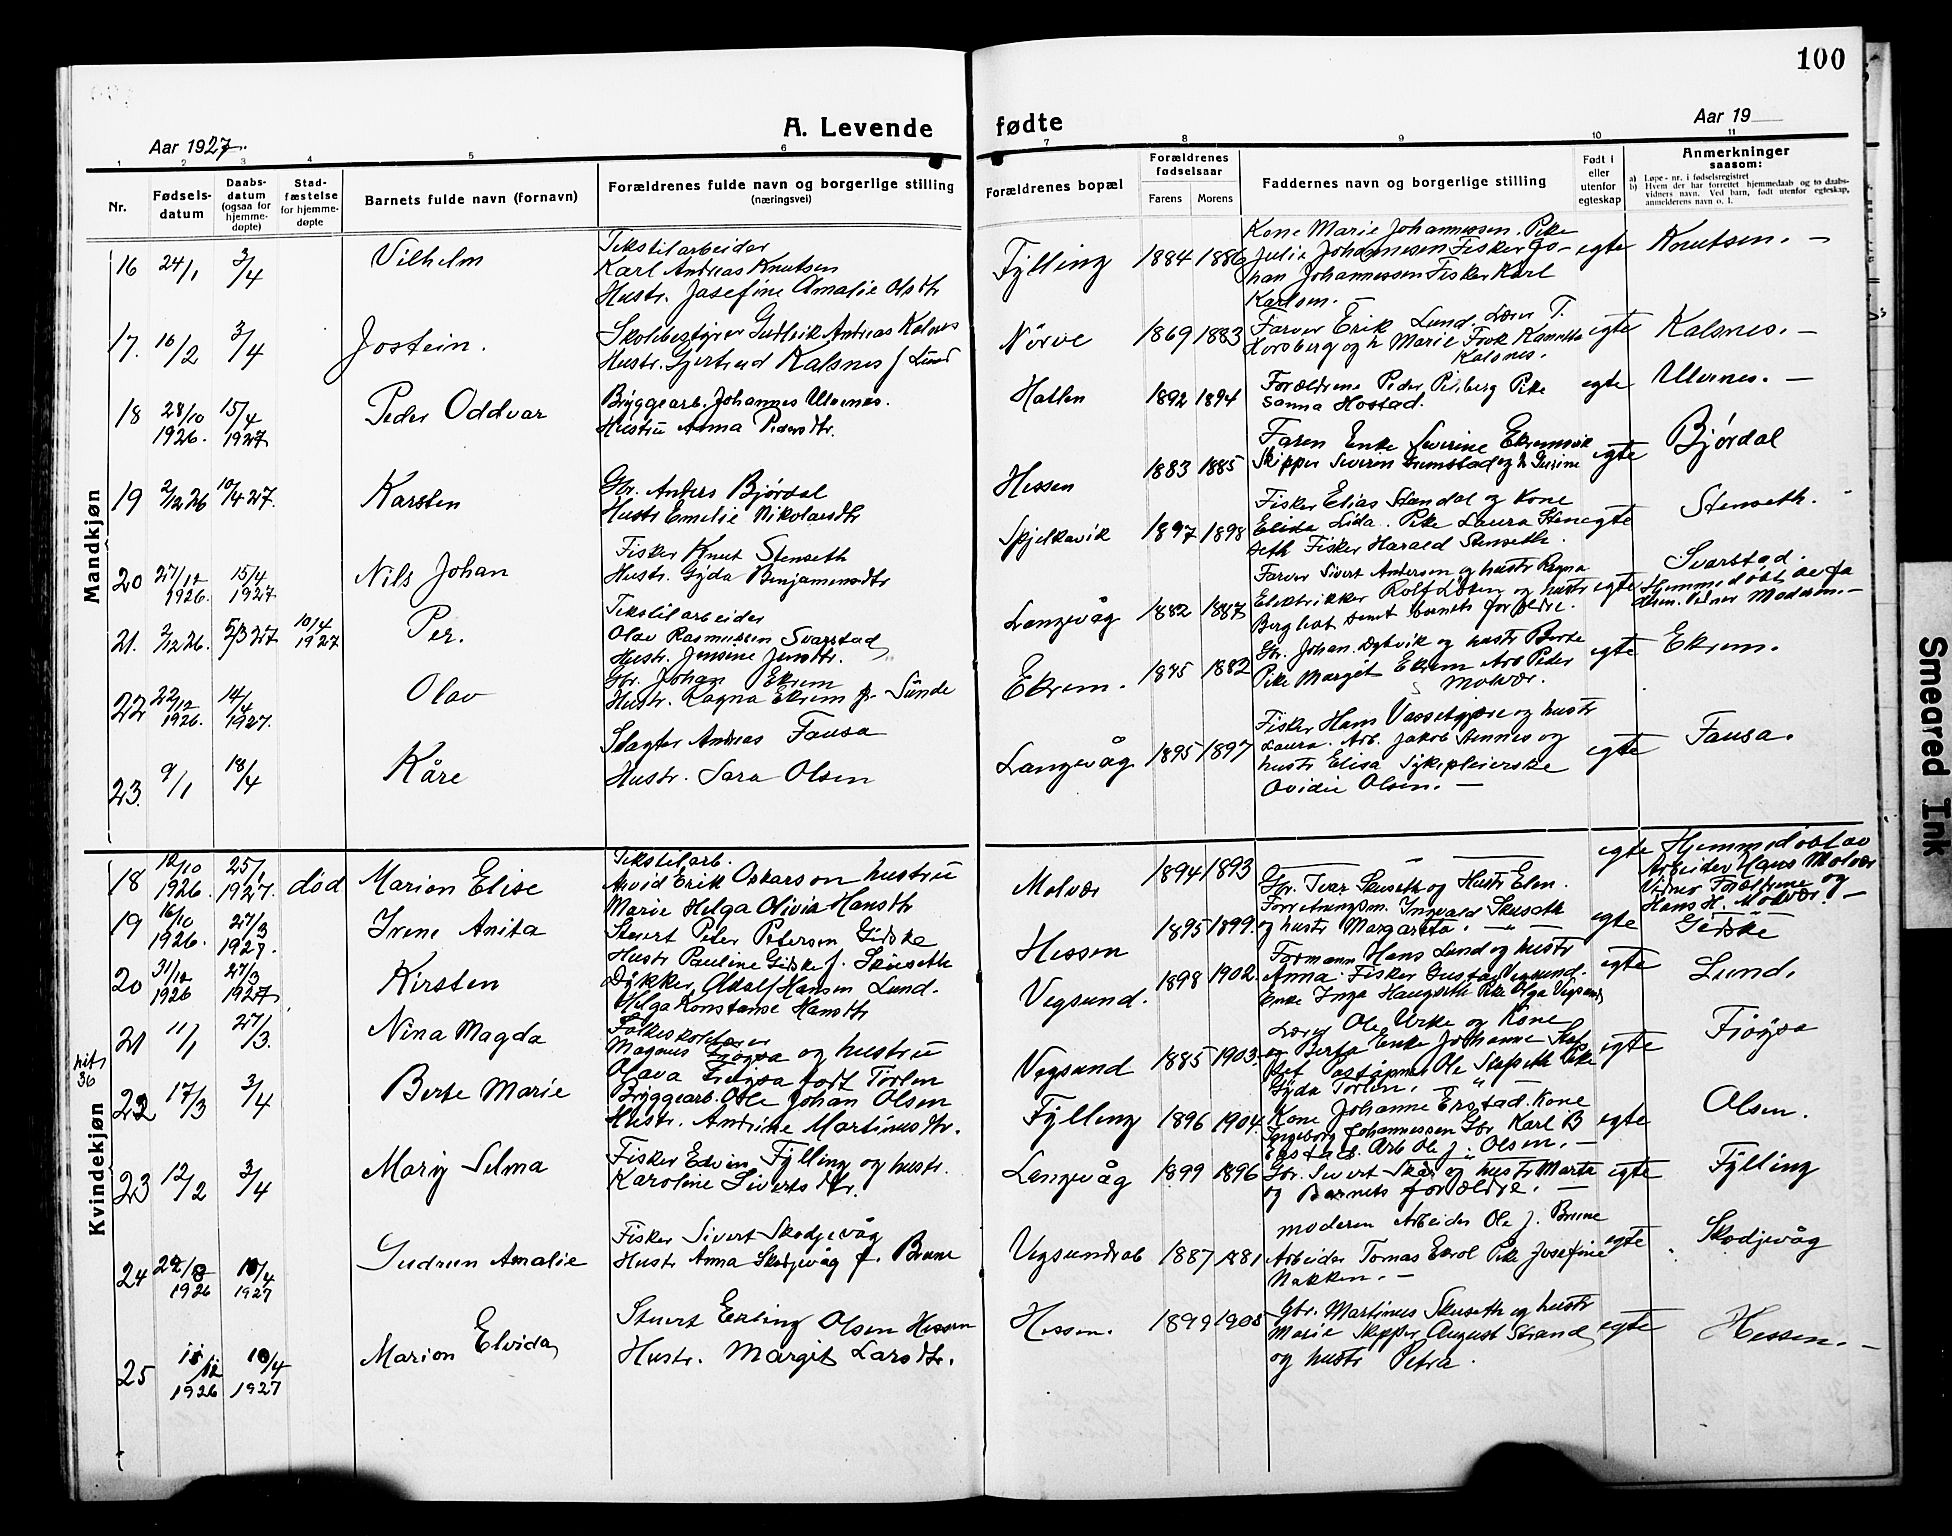 100
Aar 1927.
A. Levende
fødte
Aar 19
1 2 3 4 5 6 7 8 9 10 11
Nr.
Fødsels-
datum
Daabs-
datum
(ogsaa for
hjemme-
døpte)
Stad-
fæstelse
for hjemme-
døpte
Barnets fulde navn (fornavn)
Forældrenes fulde navn og borgerlige stilling
(næringsvei)
Forældrenes bopæl
Forældrenes
fødselsaar
Farens Morens
Faddernes navn og borgerlige stilling
Født i
eller
utenfor
egteskap
Anmerkninger
saasom:
a) Løpe-nr. i fødselsregistret
b) Hvem der har forrettet hjemmedaab og to daabs-
vidners navn. Ved barn, født utenfor egteskap,
anmelderens navn o. l.
Mandkjøn
16 24/1 3/4 Vilhelm
Tekstilarbeider
Karl Andreas Knutsen
Hustr. Josefine Amalie Olsdtr
Fylling 1884 1886
Kone Marie Johannessen. Pike
Julie Johannessen Fisker Jo-
han Johannessen Fisker Karl
Karlsen.
egte Knutsen. —
17. 16/2 3/4 Jostein.
Skolebestyrer Gudleik Andreas Kalsnes
Hustr. Gjertrud Kalsnes f. Lund
Nørve 1869 1883
Farver Erik Lund. Lærer T.
Korsberg og h. Marie Frøk
Kalsnes.
egte Kalsnes. —
18 28/10 1926. 15/4 1927 Peder Oddvar
Bryggearb. Johannes Ulvenes.
Hustru Anna Pedersdtr.
Hatlen 1892 1894
Forældrene Peder Pilberg Pike
Sanna Hostad.
egte Ulvenes. —
19 2/12 26 10/4 27. Karsten
Gbr. Anders Bjørdal
Hustr Emelie Nikolaisdtr
Hessen 1883 1885
Faren Enke Severine Ekremsvik
Skipper Severin Grimstad og h
egte Bjørdal
20 27/12 1926. 15/4 1927 Nils Johan
Fisker Knut Stenseth
Hustr. Gyda Benjaminsdtr
Spjelkavik 1897 1898
Fisker Elias Standal og Kone
Elida Lida. Pike Laura Sten
seth Fisker Harald Stenseth.
egte Stenseth.
21. 2/12 26. 5/3 27 10/4 1927 Per.
Tekstilarbeider
Olav Rasmussen Svarstad
Hustr. Jensine Jensdtr.
Langevåg 1882 1887
Farver Sivert Andersen og hustr Ragna
Elektrikker Rolf og hustr
Borghat samt barnets forældre.
egte Svarstad.
Hjemmedøbt
22 22/12 1926. 14/4 1927. Olav
Gbr. Johan Ekrem
Hustr. Ragna Ekrem f. Sunde
Ekrem. 1875 1882
Gbr. Johan og hustr Berte
Pike Margit Ekrem Arb Peder
Molvær.
egte Ekrem.
23. 9/1 18/4 Kåre
Slagter Andreas Fausa
Hustr. Sara Olsen
Langevåg 1895 1897
Fisker Hans og hustr
Laura. Arb. Jakob Stennes og
hustr Elisa Sykepleierske
Ovidie Olsen. —
egte Fausa.
Kvindekjøn
18 12/10 1926. 25/1 1927. død Marion Elise
Tekstilarb.
Arvid Erik Oskarson hustru
Marie Helga Olivia Hansdtr
Molvær 1894 1893
— " —
egte Hjemmedøbt av
Arbeider Hans Molvær
Vidner Forældrene og
Hans H. Molvær. —
19 16/10 1926. 27/3 1927. Irene Anita
Stuert Peter Petersen Giske
Hustr Pauline Giske f. Skuseth
Hessen 1895 1899.
Gbr. Ivar Skuseth og Hustr Elen.
Forretningsm. Ingvald Skuseth
og hustr Margareta. — " —
egte Giske
20 31/12 1926 27/3 1927 Kirsten
Dykker Adolf Hansen Lund.
Helga Konstanse Hansdtr
Vegsund. 1898 1902.
Formann Hans Lund og hustr
Anna. Fisker Gustav Vegsund.
Enke Inga Haugseth Pike Olga Vegsund
egte Lund.
21 11/1 27/3. Nina Magda
Folkeskolelærer
Magnus Frøysa og hustru
Olava Frøysa født Torlen
Vegsund 1885 1903.
Lærer Ole Urke og Kone
og Berta Enke Johanne Slap
Ole Slapseth Pike
Gyda Torlen. — " —
egte Frøysa
rett.
36
22 17/3 3/4 Berte Marie
Bryggearb. Ole Johan Olsen
Hustr. Andrine Martinusdtr.
Fylling 1896 1904.
Kone Johanne Erstad. Kone
Ingeborg Johannessen Gbr Karl B
Erstad. Arb Ole J. Olsen. —
egte Olsen.
23 12/2 3/4 Mary Selma
Fisker Edvin Fylling og hustr.
Karoline Sivertsdtr.
Langevåg 1899 1896
Gbr. Sivert Skår og hustr Marte
og Barnets forældre. —
egte Fylling
24 1926 10/4 1927 Gudrun Amalie
Fisker Sivert Skodjevåg
Hustr Anna Skodjevåg f. Brune
1887 1881
moderen Arbeider Ole J. Brune
Arbeider Tomas Pike Josefine
Nakken. —
egte Skodjevåg
25 1926 10/4 1927 Marion Elvida
Stuert Erling Olsen Hessen
Hustr. Margit Larsdtr.
Hessen. 1899 1905
Gbr. Martinus Skuseth og hustr
Marie Skipper August Strand
og hustr Petra.
egte Hessen. —
Smeared Ink